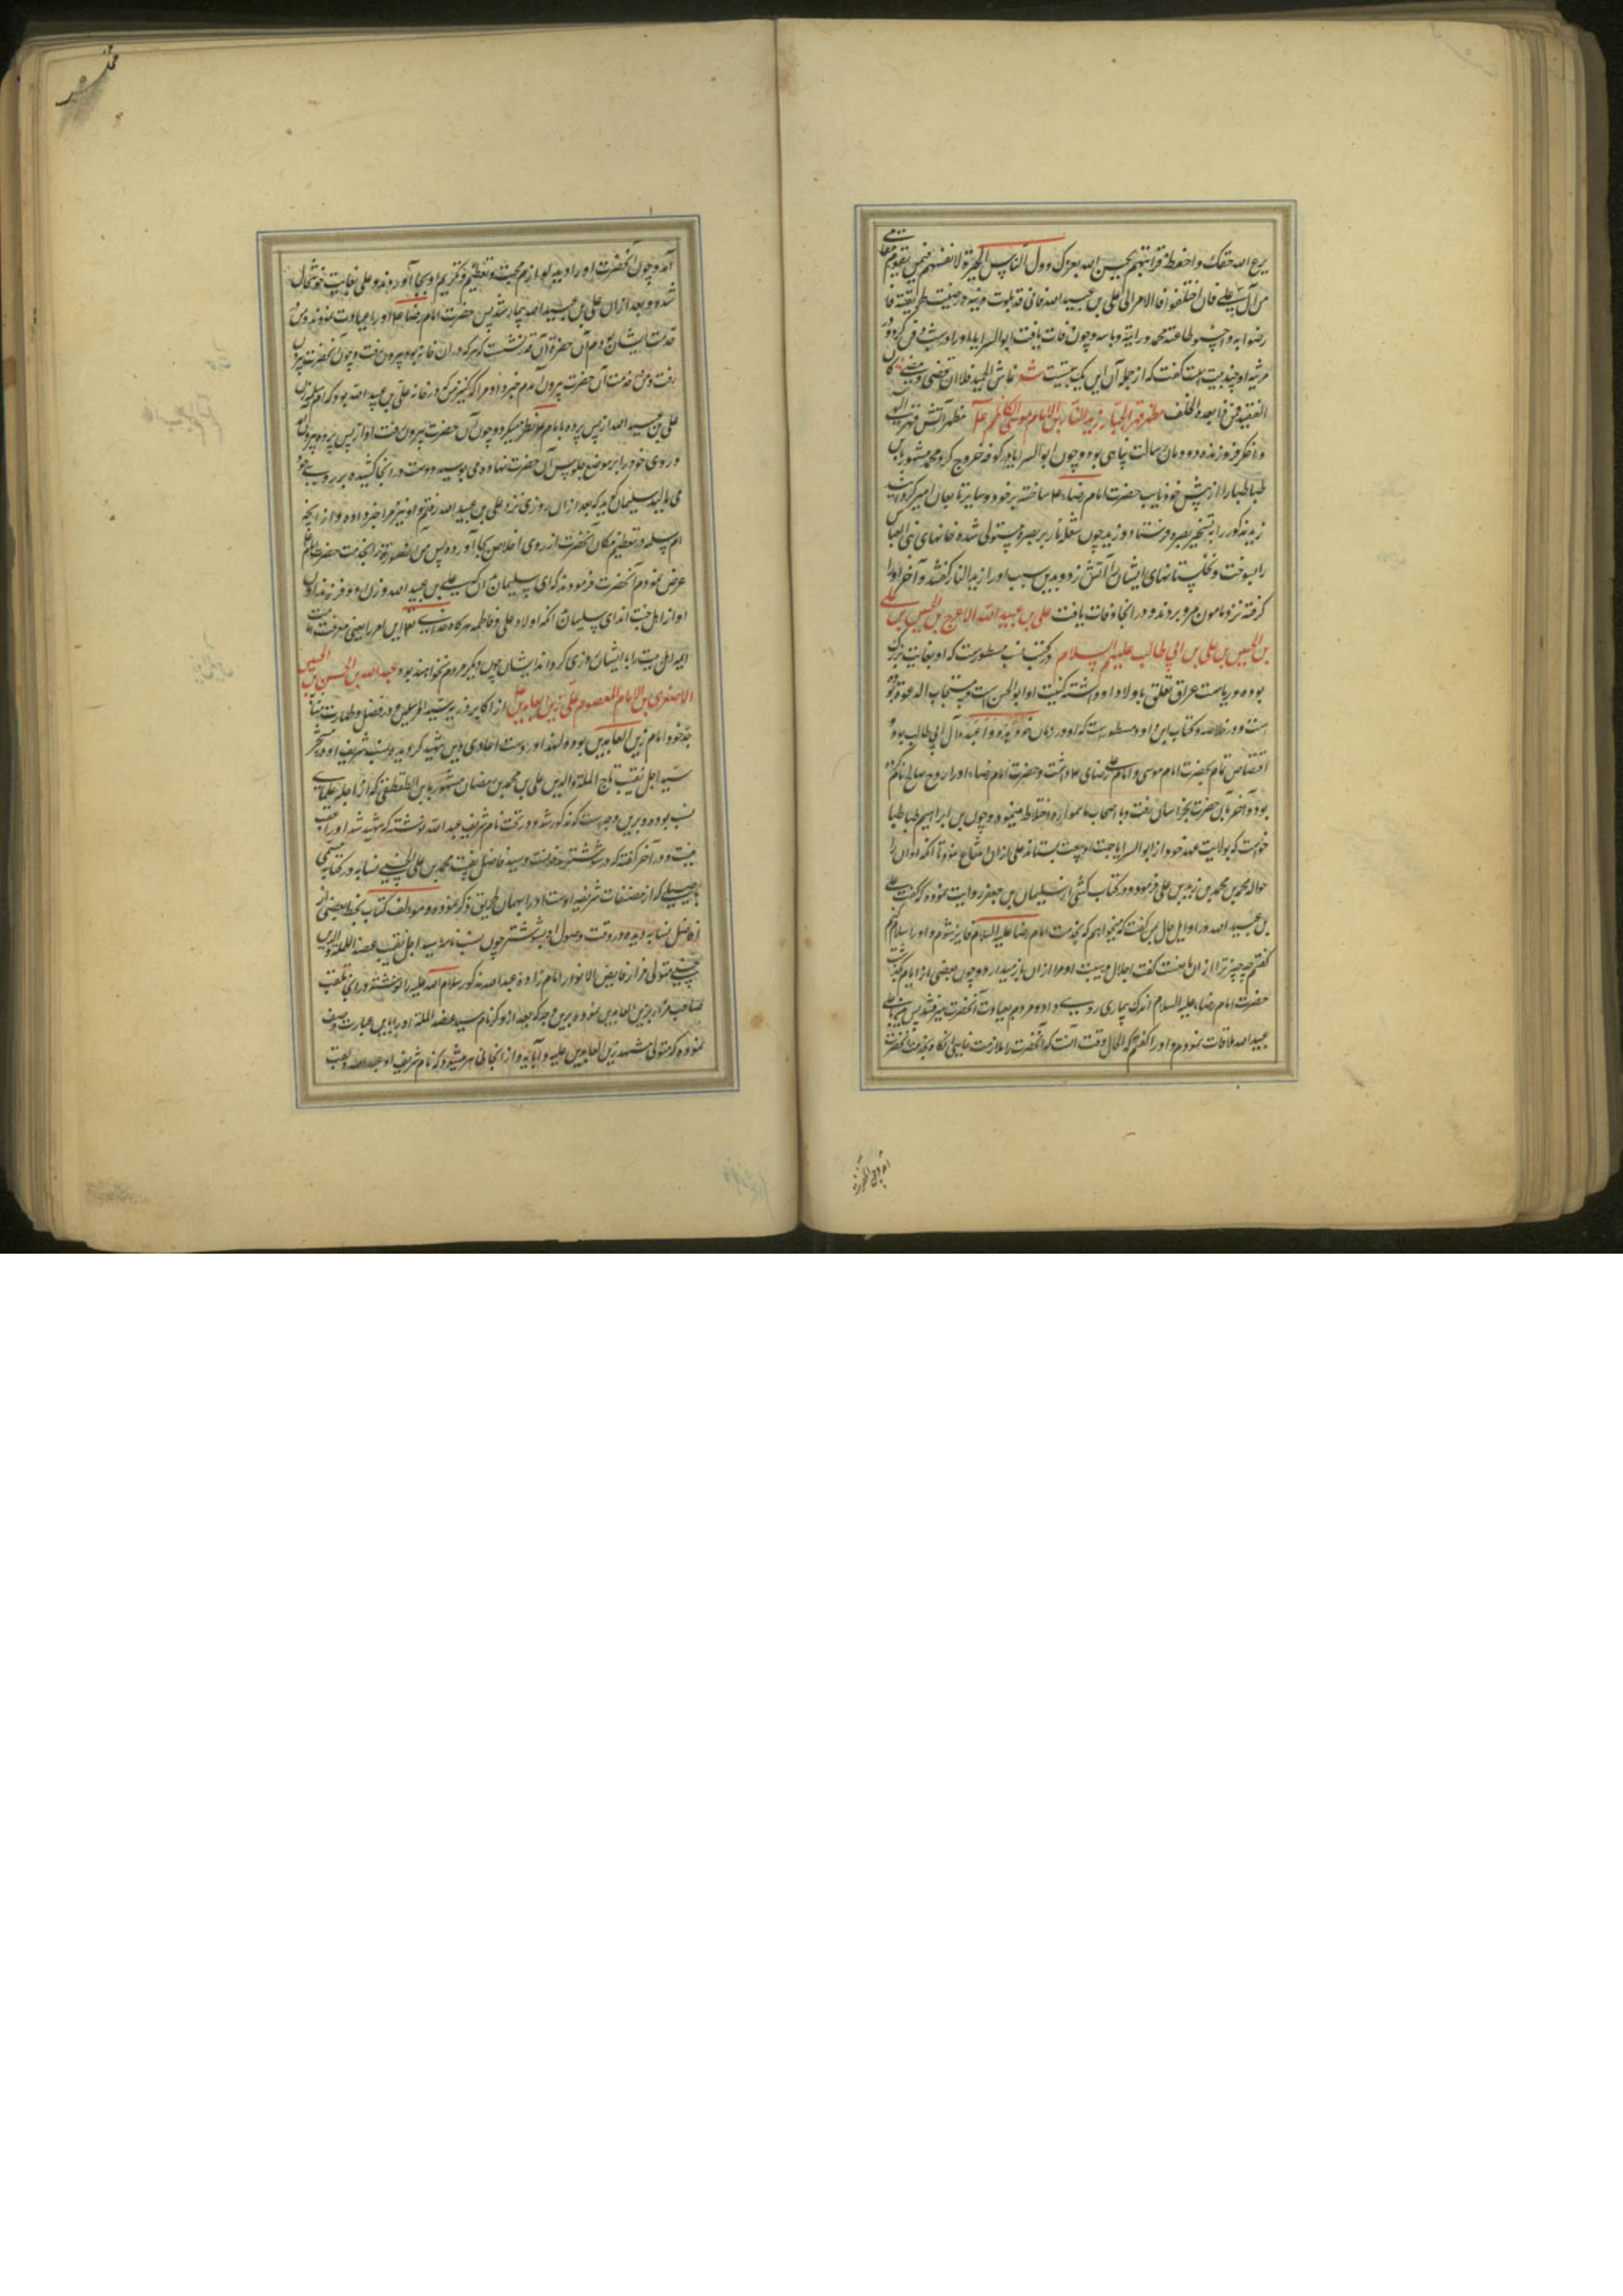 یرع الله حقک و احفظ قرابتهم یحسن الله بعونک و ول الناس الخیرة لانفسهم فیمن یقوم مقامی
من آل علی فان اختلفوا فالامر الی علی بن عبید الله فانی قد بلوت دینه و رضیت طریقته فا
رضوا به و احسنوا طاعته تحمدوا رایه و باسه و چون وفات یافت ابوالسرایا او را در شب دفن کرد و در
مرثیه او چند بیت گفت که از جمله آن این یک بیتست شعر عاش الحمید فلما ان قضی و مضی کان
الفقید فمن ذا بعده الخلف مظهر قهر الجبار زید النار بن الامام موسی الکاظم مظهر آتش قهر الهی
و اخگر فروزنده دودمان رسالت پناهی بود و چون ابوالسرایا در کوفه خروج کرد و محمد مشهور بابن
طباطبا را از پیش خود نایب حضرت امام رضا ع ساخته بر خود و سایر تابعان امیر گردانید
زید مذکور را به تسخیر بصره فرستاد و زید چون شعله نار بر بصره مستولی شده خانهای بنی العباس
را بسوخت و نخلستانهای ایشان را آتش زد و بدین سبب او را زید النار گفتند و آخر او را
گرفته نزد مامون بمرو بردند و در آنجا وفات یافت علی بن عبید الله الاعرج بن الحسین بن علی
بن الحسین بن علی بن ابی طالب علیهم السلام در کتب انساب مسطورست که او بغایت بزرگ
بوده و ریاست عراق تعلق باولاد او داشته کنیت او ابو الحسن است و مستجاب الدعوة بوده
است و در خلاصه و کتاب ابن داود مسطورست که او در زمان خود ازهد و اعبد آل ابی طالب بود و
اختصاص تمام بحضرت امام موسی و امام علی رضا ع داشت و حضرت امام رضا ع او را زوج صالح نام کرده
بود و آخر بآن حضرت بخراسان رفت و با اصحاب ما همواره اختلاط مینمود و چون محمد بن ابراهیم طباطبا
خواست که بولایت عهد خود از ابوالسرایا جهت او بیعت بستاند علی از آن امتناع نمود تا آنکه او آن را
حواله محمد بن محمد بن زید بن علی فرمود و در کتاب کشی از سلیمان بن جعفر روایت نموده که گفت علی
بن عبید الله در اوایل حال بمن گفت که میخواهم که بخدمت امام رضا علیه السلام فایز شوم و او را سلام کنم
گفتم چه چیز ترا از آن مانعست گفت اجلال و هیبت او مرا از آن باز میدارد و چون بعضی از ایام گذشت
حضرت امام رضا علیه السلام اندک بیماری روی داد و مردم بعیادت آنحضرت میرفتند پس من با علی بن
عبید الله ملاقات نمودم و او را گفتم که الحال وقت آنست که آنحضرت را ملازمت نمایی آنگاه بخدمت آنحضرت
آمد و چون آنحضرت او را دید لوازم محبت و تعظیم و تکریم او بجا آوردند و علی بغایت خوشحال
شد و بعد از آن علی بن عبید الله بیمار شد پس حضرت امام رضا ع او را عیادت نمودند و من در
خدمت ایشان بودم آن حضرت آن قدر نشست که هر که در آن خانه بود بیرون رفت و چون آنحضرت بیرون
رفت و من در خدمت آن حضرت بیرون آمدم خبر داد مرا کنیز من که در خانه علی بن عبید الله بود که ام سلمه زن
علی بن عبید الله از پس پرده بامام ع نظر میکرد و چون آن حضرت بیرون رفت او از پس پرده بیرون آمد
و روی خود را بر موضع جلوس آن حضرت نهاده می بوسید و دست در آنجا کشیده بر روی خود
می مالید سلیمان گوید که بعد از آن روزی نزد علی بن عبید الله رفتم و او نیز مرا خبر داد از آنچه
ام سلمه در تعظیم مکان آنحضرت از روی اخلاص بجا آورده پس من این قصه را بخدمت حضرت امام
عرض نمودم آنحضرت فرمودند که ای سلیمان آن علی بن عبید الله و زن او و فرزندان
او از اهل جنت اند ای سلیمان آنکه اولاد علی و فاطمه هرگاه خدای تعالی این امر یعنی معرفت
ایمه اهل بیت را با ایشان روزی گرداند ایشان چون دیگر مردم نخواهند بود عبد الله بن الحسن بن الحسین
الاصغر بن الامام المعصوم علی زین العابدین از اکابر ذریه سید المرسلین و در فضل و طهارت
جد خود امام زین العابدین بوده و لهذا در دست اعادی دین شهید گردید و نسب شریف او در مشجر
سید اجل نقیب تاج الملة و الدین علی بن محمد بن رمضان مشهور بابن الطقطقی که از اجله علمای
نسب بوده و برین وجه ست که مذکور شد و در تحت نام شریف عبد الله نوشته که شهید شد او را عقب
نیست و در آخر گفته که در شوشتر مدفونست و سید فاضل نقیب محمد بن علی الحسینی نسابه در کتاب مسمی
باصیلی که از مصنفات شریفه اوست او را بهمان طریق ذکر نموده و مولف کتاب بخط بعضی از
افاضل نسابه دیده و در وقت وصول او بشوشتر چون نسب نامه سید اجل نقیب عضد الملة و الدین
حسینی متولی مزار فایض الانوار امام زاده عبد الله مذکور سلام الله علیه را نوشته در آن بلقب
صاحب مزار بزین العابدین نموده برین وجه که بعد از ذکر نام سید عضد الملة او را باین عبارت وصف
نموده که متولی مشهد زین العابدین علیه و آبایه و از آنجا ظاهر میشود که نام شریف او عبد الله و لقب